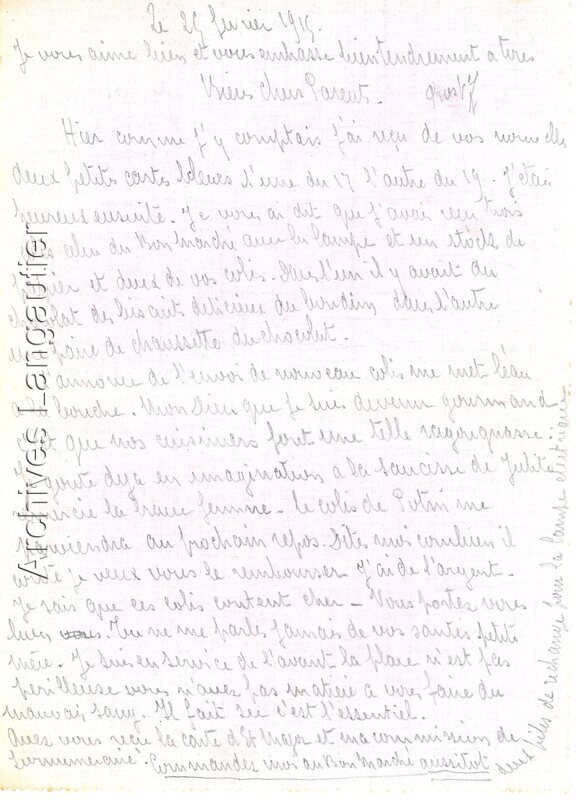 Le 25 février 1915.
Je vous aime bien et vous embrasse bien tendrement a tous
Biens chers Parents.
Hier comme j'y comptais j'ai reçu de vos nouvelles
deux petits cartes bleues l'une du 17 l'autre du 19. J'étais
heureux ensuite. Je vous ai dit que j'avais reçu trois
colis celui du Bon Marché avec la lampe et un stock de
papier et deux de vos colis. Dans l'un il y avait du
chocolat des biscuits délicieux du boudin dans l'autre
une paire de chaussette du chocolat.
L'annonce de l'envoi de nouveau colis me met l'eau
a la bouche. Mon Dieu que je suis devenu gourmand
C'est que nos cuisiniers font une telle ragougnasse.
Je goute deja en imagination a la saucisse de
la brave femme - le colis de Potin me
parviendra au prochain repos. Dites moi combien il
coute je veux vous le rembourser. J'ai de l'argent.
Je sais que ces colis coutent cher - Vous portez vous
bien. Tu ne me parles jamais de vos santés petite
mère. Je suis en service de l'avant la place n'est pas
perilleuse vous n'avez pas matière a vous faire du
mauvais sang. Il fait sec c'est l'essentiel.
Avez vous reçu la carte d'Et Major et ma commission de
Commandez moi au Bon Marché aussitot
deux piles de rechange pour la lampe electrique
Archives Langautier